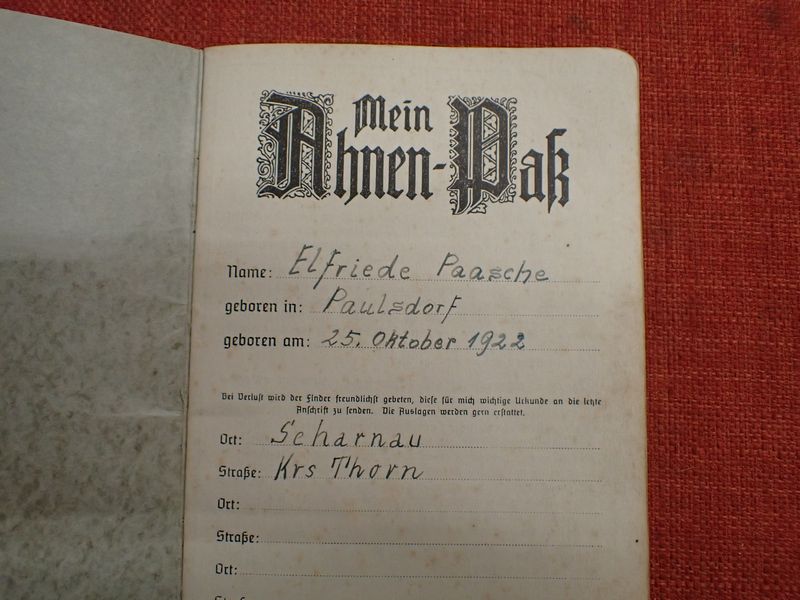 Mein
Ahnen-Paß
Name: Elfriede Paasche
geboren in: Paulsdorf
geboren am: 25. Oktober 1922
Bei Verlust wird der Finder freundlichst gebeten, diese für mich wichtige Urkunde an die letzte
Anschrift zu senden. Die Auslagen werden gern erstattet.
Ort: Scharnau
Straße: Krs Thorn
Ort:
Straße:
Ort: